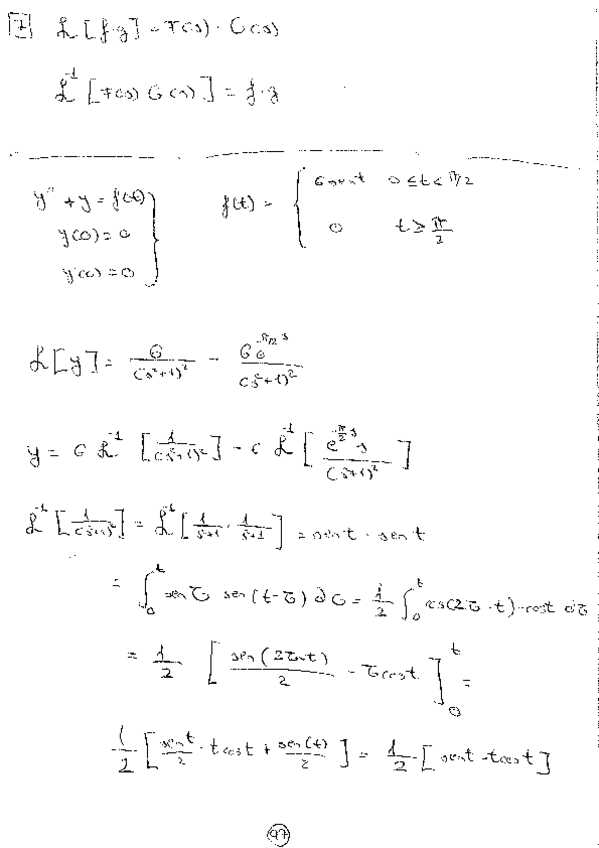 7 ℒ[f·g] = F(s)·G(s)
ℒ⁻¹[F(s) G(s)] = f·g
y'' + y = f(t)
y(0) = 0
y'(0) = 0
f(t) = { 6 sent 0 ≤ t < π/2
0 t ≥ π/2
ℒ[y] = 6/(s²+1)² - 6e^(-π/2 s)/(s²+1)²
y = 6 ℒ⁻¹[1/(s²+1)²] - 6 ℒ⁻¹[e^(-π/2 s) s/(s²+1)²]
ℒ⁻¹[1/(s²+1)²] = ℒ⁻¹[1/(s²+1) · 1/(s²+1)] = sent · sent
= ∫₀ᵗ sen τ sen(t-τ) dτ = 1/2 ∫₀ᵗ cos(2τ-t) - cost dτ
= 1/2 [sen(2τ-t)/2 - τcost]₀ᵗ =
1/2 [sent/2 - tcost + sen(t)/2] = 1/2 [sent - tcost]
97